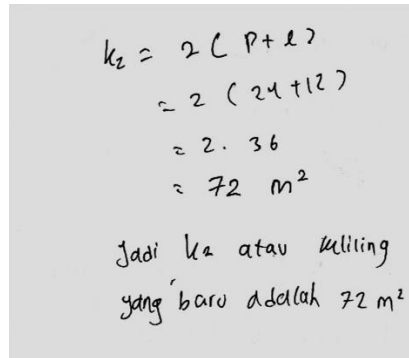 k₂ = 2 ( p + l )
= 2 ( 24 + 12 )
= 2 . 36
= 72 m²
Jadi k₂ atau keliling
yang baru adalah 72 m²